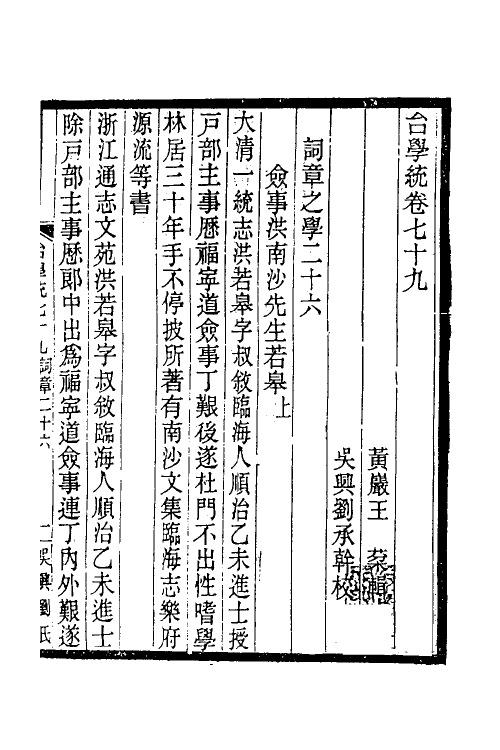 台學統卷七十九
黃巖王棻輯
吳興劉承幹校
詞章之學二十六
僉事洪南沙先生若皋上
大清一統志洪若皋字叔敘臨海人順治乙未進士授
戸部主事歷福寧道僉事丁艱後遂杜門不出性嗜學
林居三十年手不停披所著有南沙文集臨海志樂府
源流等書
浙江通志文苑洪若皋字叔敘臨海人順治乙未進士
除戸部主事歷郞中出爲福寧道僉事連丁內外艱遂
台學統七十九詞章二十六 一 吳興劉氏